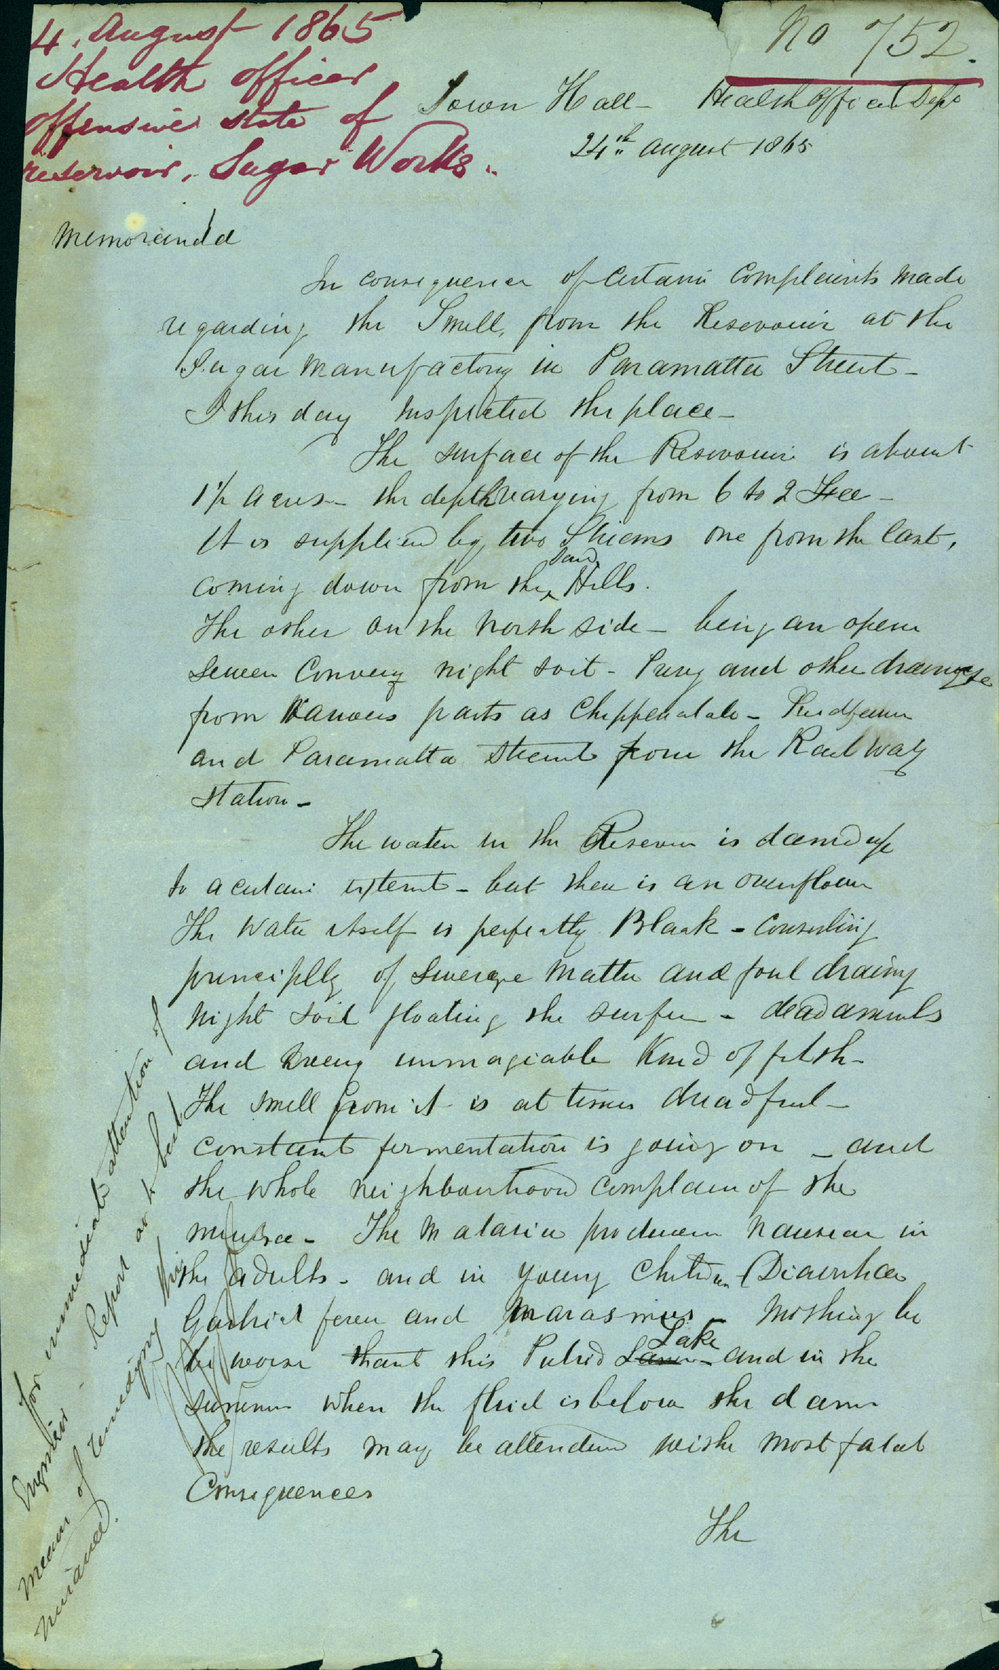 4. August 1865
Health officer
offensive state of
reservoir, Sugar Works.
No 752.
Town Hall - Health Officer Dept
24th August 1865
Memoranda
In consequence of certain complaints made
regarding the Smell, from the Reservoir at the
Sugar Manufactory in Paramatta Street -
I this day inspected the place -
The surface of the Reservoir is about
1½ acres - the depth varying from 6 to 2 Feet -
It is supplied by two Streams one from the East,
coming down from the Sand Hills.
The other on the North side - being an open
Sewer Convey night soil - Privy and other drainage
from Various parts as Chippendale - Redfern
and Paramatta Street from the Railway
Station -
The water in the Reservoir is damed up
to a certain extent - but there is an overflow
The Water itself is perfectly Black - consisting
principlly of Sewerage Matter and foul draing
Night Soil floating the surface - dead animals
and Every immagiable Kind of filth -
The Smell from it is at times dreadful -
constant fermentation is going on - and
the whole neighbourhood complain of the
nuisance - The Malaria produces Nausea in
the adults - and in young Children (Diarrhœa
Gastric fever and Marasmus - Nothing be
be worse than this Putrid Lake - and in the
summer when the fluid is below the dam
the results may be attended with most fatal
Consequences
The
Engineer for immediate attention of
Report as to best
means of remedying this
nuisance.